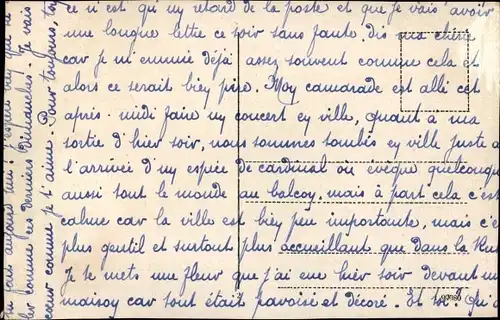 ce n'est qu'un retard de la poste et que je vais avoir
une longue lettre ce soir sans faute. dis ma chérie
car je m'ennuie déjà assez souvent comme cela et
alors ce serait bien pire. Mon camarade est allé cet
après-midi faire un concert en ville, quant à ma
sortie d'hier soir, nous sommes tombés en ville juste à
l'arrivée d'un espèce de cardinal ou évêque quelconque
aussi tout le monde au balcon, mais à part cela c'est
calme car la ville est bien peu importante, mais c'est
plus gentil et surtout plus accueillant que dans la
Je te mets une fleur que j'ai eue hier soir devant un
maison car tout était pavoisé et décoré. Et toi? Qu'a
aujourd'hui ! J'espère bien que ne
comme ces derniers Dimanches. Je vais
cœur comme je t'aime. Pour toujours, ton